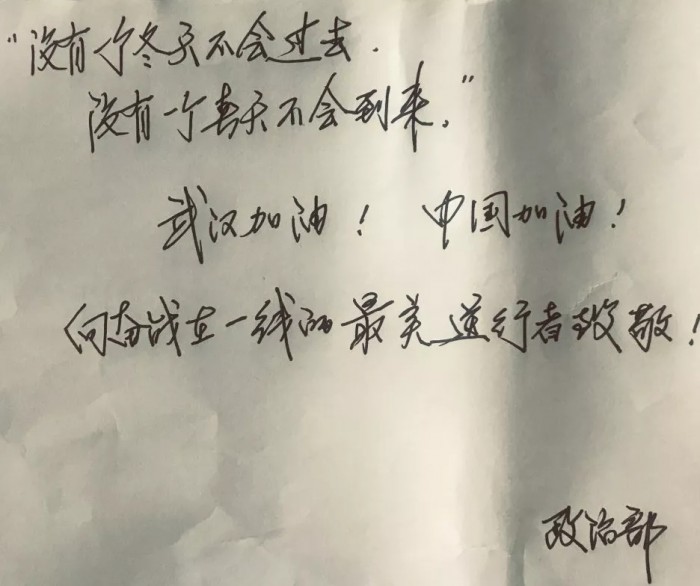 “没有个冬天不会过去.
没有一个春天不会到来.”
武汉加油! 中国加油!
向奋战在一线的最美逆行者致敬!
政治部